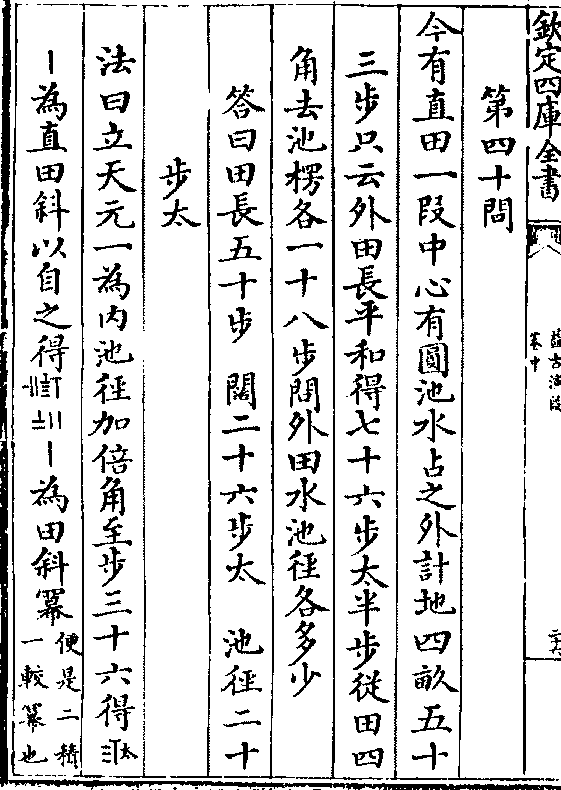 欽定四庫全書
卷中
第四十問
今有直田一段中心有圓池水占之外計地四畝五十
三步只云外田長平和得七十六步太半步從田四
角去池楞各一十八步問外田水池徑各多少
答曰田長五十步　闊二十六步太　池徑二十
步太
法曰立天元一為內池徑加倍角至步三十六得太
〡為直田斜以自之得〡為田斜冪便是二積
一較冪也